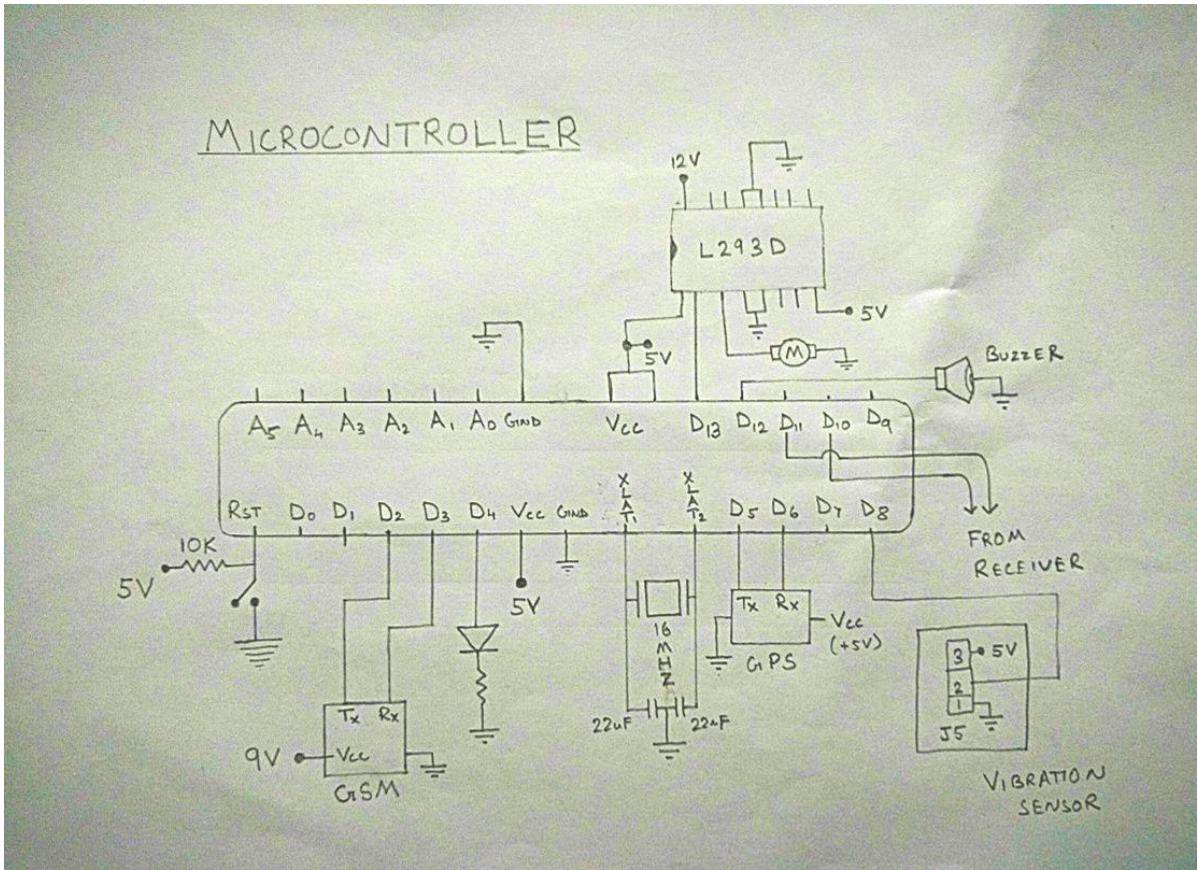 MICROCONTROLLER
12V
L293D
5V
5V
M
BUZZER
A5 A4 A3 A2 A1 A0 GND VCC D13 D12 D11 D10 D9
RST D0 D1 D2 D3 D4 Vcc GND XLAT1 XLAT2 D5 D6 D7 D8
FROM
RECEIVER
10K
5V
5V
16MHZ
Tx Rx
Vcc
(+5V)
GPS
3 5V
2
1
J5
22uF 22uF
Tx Rx
9V Vcc
GSM
VIBRATION
SENSOR